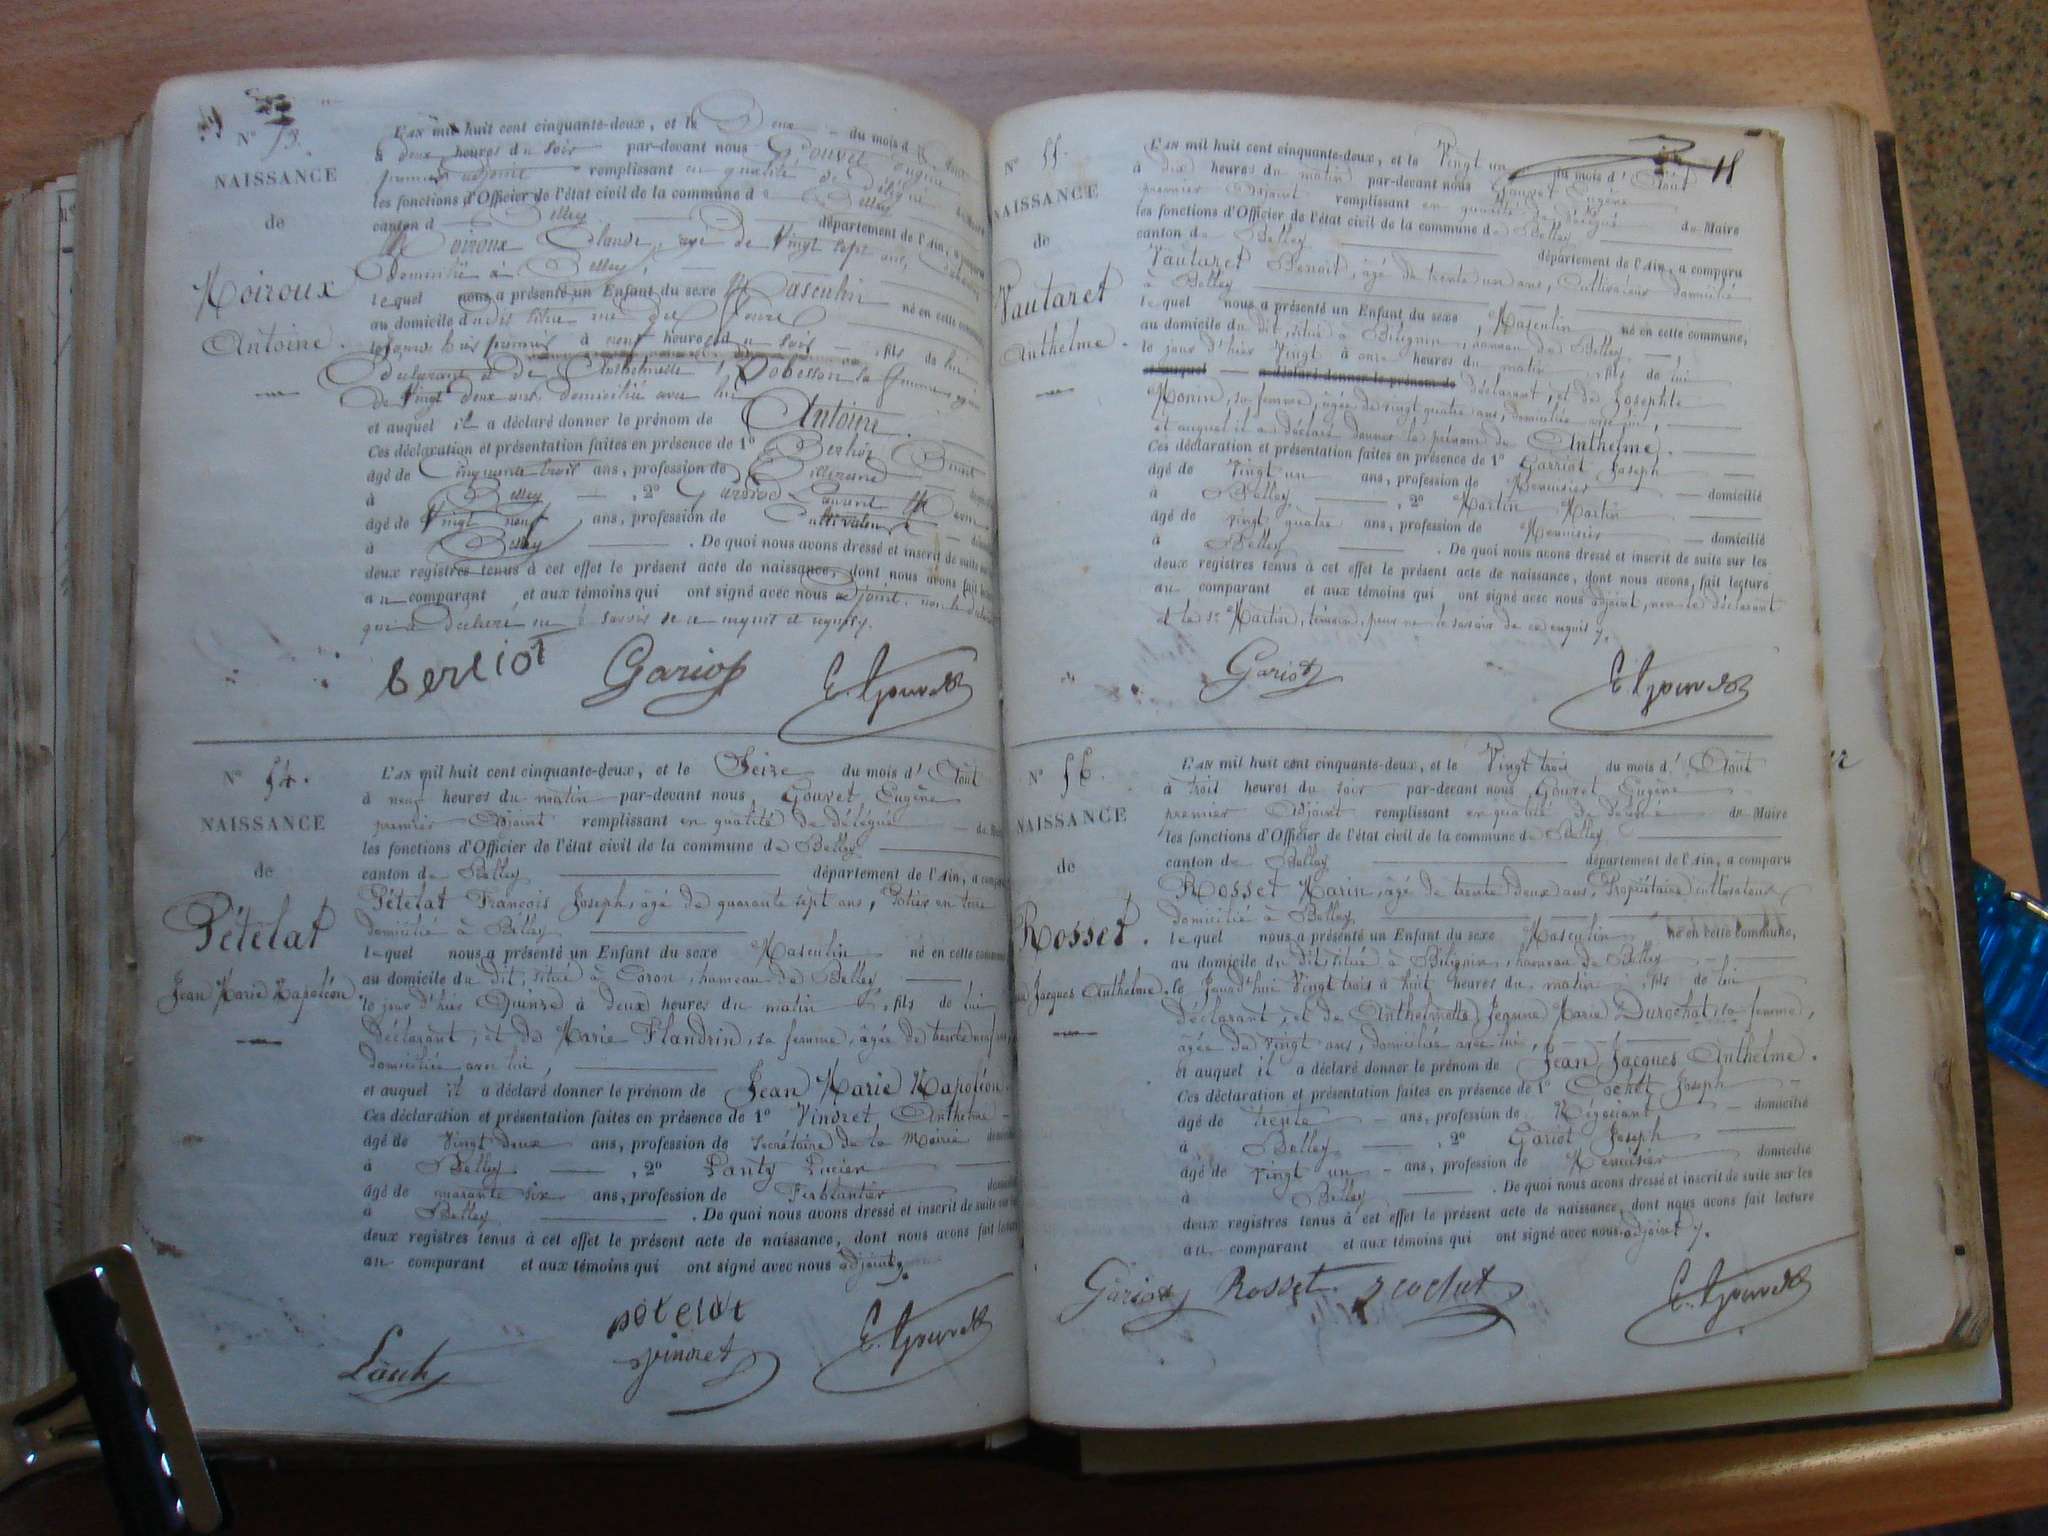 N° 53.
NAISSANCE
de
Moiroux
Antoine.
L'AN mil huit cent cinquante-deux, et le Deux du mois d'
à deux heures du soir par-devant nous Gouvet Eugène
premier adjoint remplissant en qualité de délégué
les fonctions d'Officier de l'état civil de la commune de Belley du Maire
canton de Belley département de l'Ain, a comparu
Moiroux Claude, âgé de Vingt sept ans,
Domicilié à Belley,
lequel nous a présenté un Enfant du sexe Masculin
au domicile du dit situé rue du né en cette commune
à neuf heures du soir, fils de lui
déclarant et de Anthelmette sa femme, âgée
de Vingt deux ans, domiciliée avec lui
et auquel il a déclaré donner le prénom de Antoine.
Ces déclaration et présentation faites en présence de 1°
âgé de Cinquante trois ans, profession de
à Belley, 2°
âgé de Vingt neuf ans, profession de Cultivateur
à Belley. De quoi nous avons dressé et inscrit de suite sur
deux registres tenus à cet effet le présent acte de naissance, dont nous avons fait lecture
au comparant et aux témoins qui ont signé avec nous adjoint, non le déclarant
qui a déclaré ne le savoir de ce enquis et requis.
berliot Gariot E. Gouvet
N° 54.
NAISSANCE
de
Pételat
Jean Marie Napoléon
L'AN mil huit cent cinquante-deux, et le Seize du mois d'Août
à neuf heures du matin par-devant nous Gouvet Eugène
premier Adjoint remplissant en qualité de délégué du Maire
les fonctions d'Officier de l'état civil de la commune de Belley
canton de Belley département de l'Ain, a comparu
Pételat François Joseph, âgé de quarante sept ans, Potier en terre
domicilié à Belley
lequel nous a présenté un Enfant du sexe Masculin né en cette commune
au domicile du dit, situé à Coron, hameau de Belley
le jour d'hier Quinze à deux heures du matin, fils de lui
déclarant, et de Marie Flandrin, sa femme, âgée de trente neuf ans,
domiciliée avec lui,
et auquel il a déclaré donner le prénom de Jean Marie Napoléon.
Ces déclaration et présentation faites en présence de 1° Vindret Anthelme
âgé de Vingt deux ans, profession de Secrétaire de la Mairie domicilié
à Belley, 2° Lanty Lucien
âgé de quarante six ans, profession de Ferblantier domicilié
à Belley. De quoi nous avons dressé et inscrit de suite sur les
deux registres tenus à cet effet le présent acte de naissance, dont nous avons fait lecture
au comparant et aux témoins qui ont signé avec nous adjoint.
Lanty pételat vindret E. Gouvet
11
N° 55.
NAISSANCE
de
Vautaret
Anthelme.
L'AN mil huit cent cinquante-deux, et le Vingt un du mois d'Août
à dix heures du matin par-devant nous Gouvet Eugène
premier Adjoint remplissant en qualité de délégué du Maire
les fonctions d'Officier de l'état civil de la commune de Belley
canton de Belley département de l'Ain, a comparu
Vautaret Benoit, âgé de trente un ans, Cultivateur domicilié
à Belley
lequel nous a présenté un Enfant du sexe Masculin né en cette commune,
au domicile du dit, situé à Bilignin, hameau de Belley,
le jour d'hier Vingt à onze heures du matin, fils de lui
et auquel a déclaré donner le prénom de déclarant, et de Josephte
Monin, sa femme, âgée de vingt quatre ans, domiciliée avec lui,
et auquel il a déclaré donner le prénom de Anthelme.
Ces déclaration et présentation faites en présence de 1° Garriot Joseph
âgé de Vingt un ans, profession de Menuisier domicilié
à Belley, 2° Martin Martin
âgé de vingt quatre ans, profession de Menuisier domicilié
à Belley. De quoi nous avons dressé et inscrit de suite sur les
deux registres tenus à cet effet le présent acte de naissance, dont nous avons fait lecture
au comparant et aux témoins qui ont signé avec nous adjoint, non le déclarant
et le sr Martin, témoin, pour ne le savoir de ce enquis.
Gariot E. Gouvet
N° 56.
NAISSANCE
de
Rosset.
Jean Jacques Anthelme.
L'AN mil huit cent cinquante-deux, et le Vingt trois du mois d'Août
à trois heures du soir par-devant nous Gouvet Eugène
premier Adjoint remplissant en qualité de délégué du Maire
les fonctions d'Officier de l'état civil de la commune de Belley
canton de Belley département de l'Ain, a comparu
Rosset Marin, âgé de trente deux ans, Propriétaire cultivateur
domicilié à Belley,
lequel nous a présenté un Enfant du sexe Masculin né en cette commune,
au domicile du dit, situé à Bilignin, hameau de Belley
le Jourd'hui Vingt trois à huit heures du matin, fils de lui
déclarant, et de Anthelmette Jeanne Marie Durochat, sa femme,
âgée de vingt ans, domiciliée avec lui,
et auquel il a déclaré donner le prénom de Jean Jacques Anthelme.
Ces déclaration et présentation faites en présence de 1° Cochet Joseph
âgé de trente ans, profession de Négociant domicilié
à Belley, 2° Gariot Joseph
âgé de vingt un ans, profession de Menuisier domicilié
à Belley. De quoi nous avons dressé et inscrit de suite sur les
deux registres tenus à cet effet le présent acte de naissance, dont nous avons fait lecture
au comparant et aux témoins qui ont signé avec nous adjoint.
Gariot Rosset. J cochet E. Gouvet